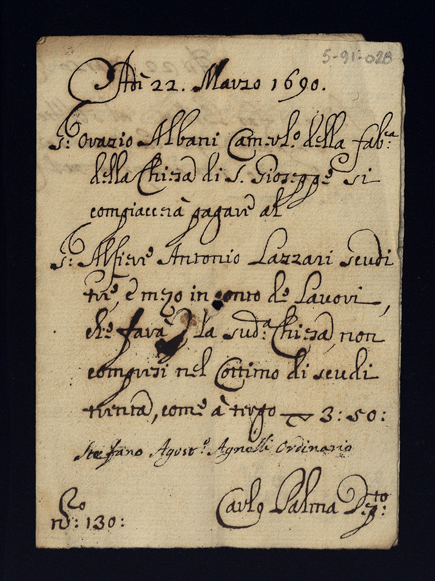 5-91-02B
Adì 22. Marzo 1690.
Sr. Orazio Albani Camerlo. della fabca.
della Chiesa di S. Gioseppe si
compiacerà pagare al
Sr. Alfiere Antonio Lazzari scudi
tre, e mezo in conto de Lavori,
che farà la suda. Chiesa, non
compresi nel Cottimo di scudi
trenta, come à tergo 3:50:
Stefano Agosto. Agnelli Ordinario
no: 130:
Carlo Palma Dto.